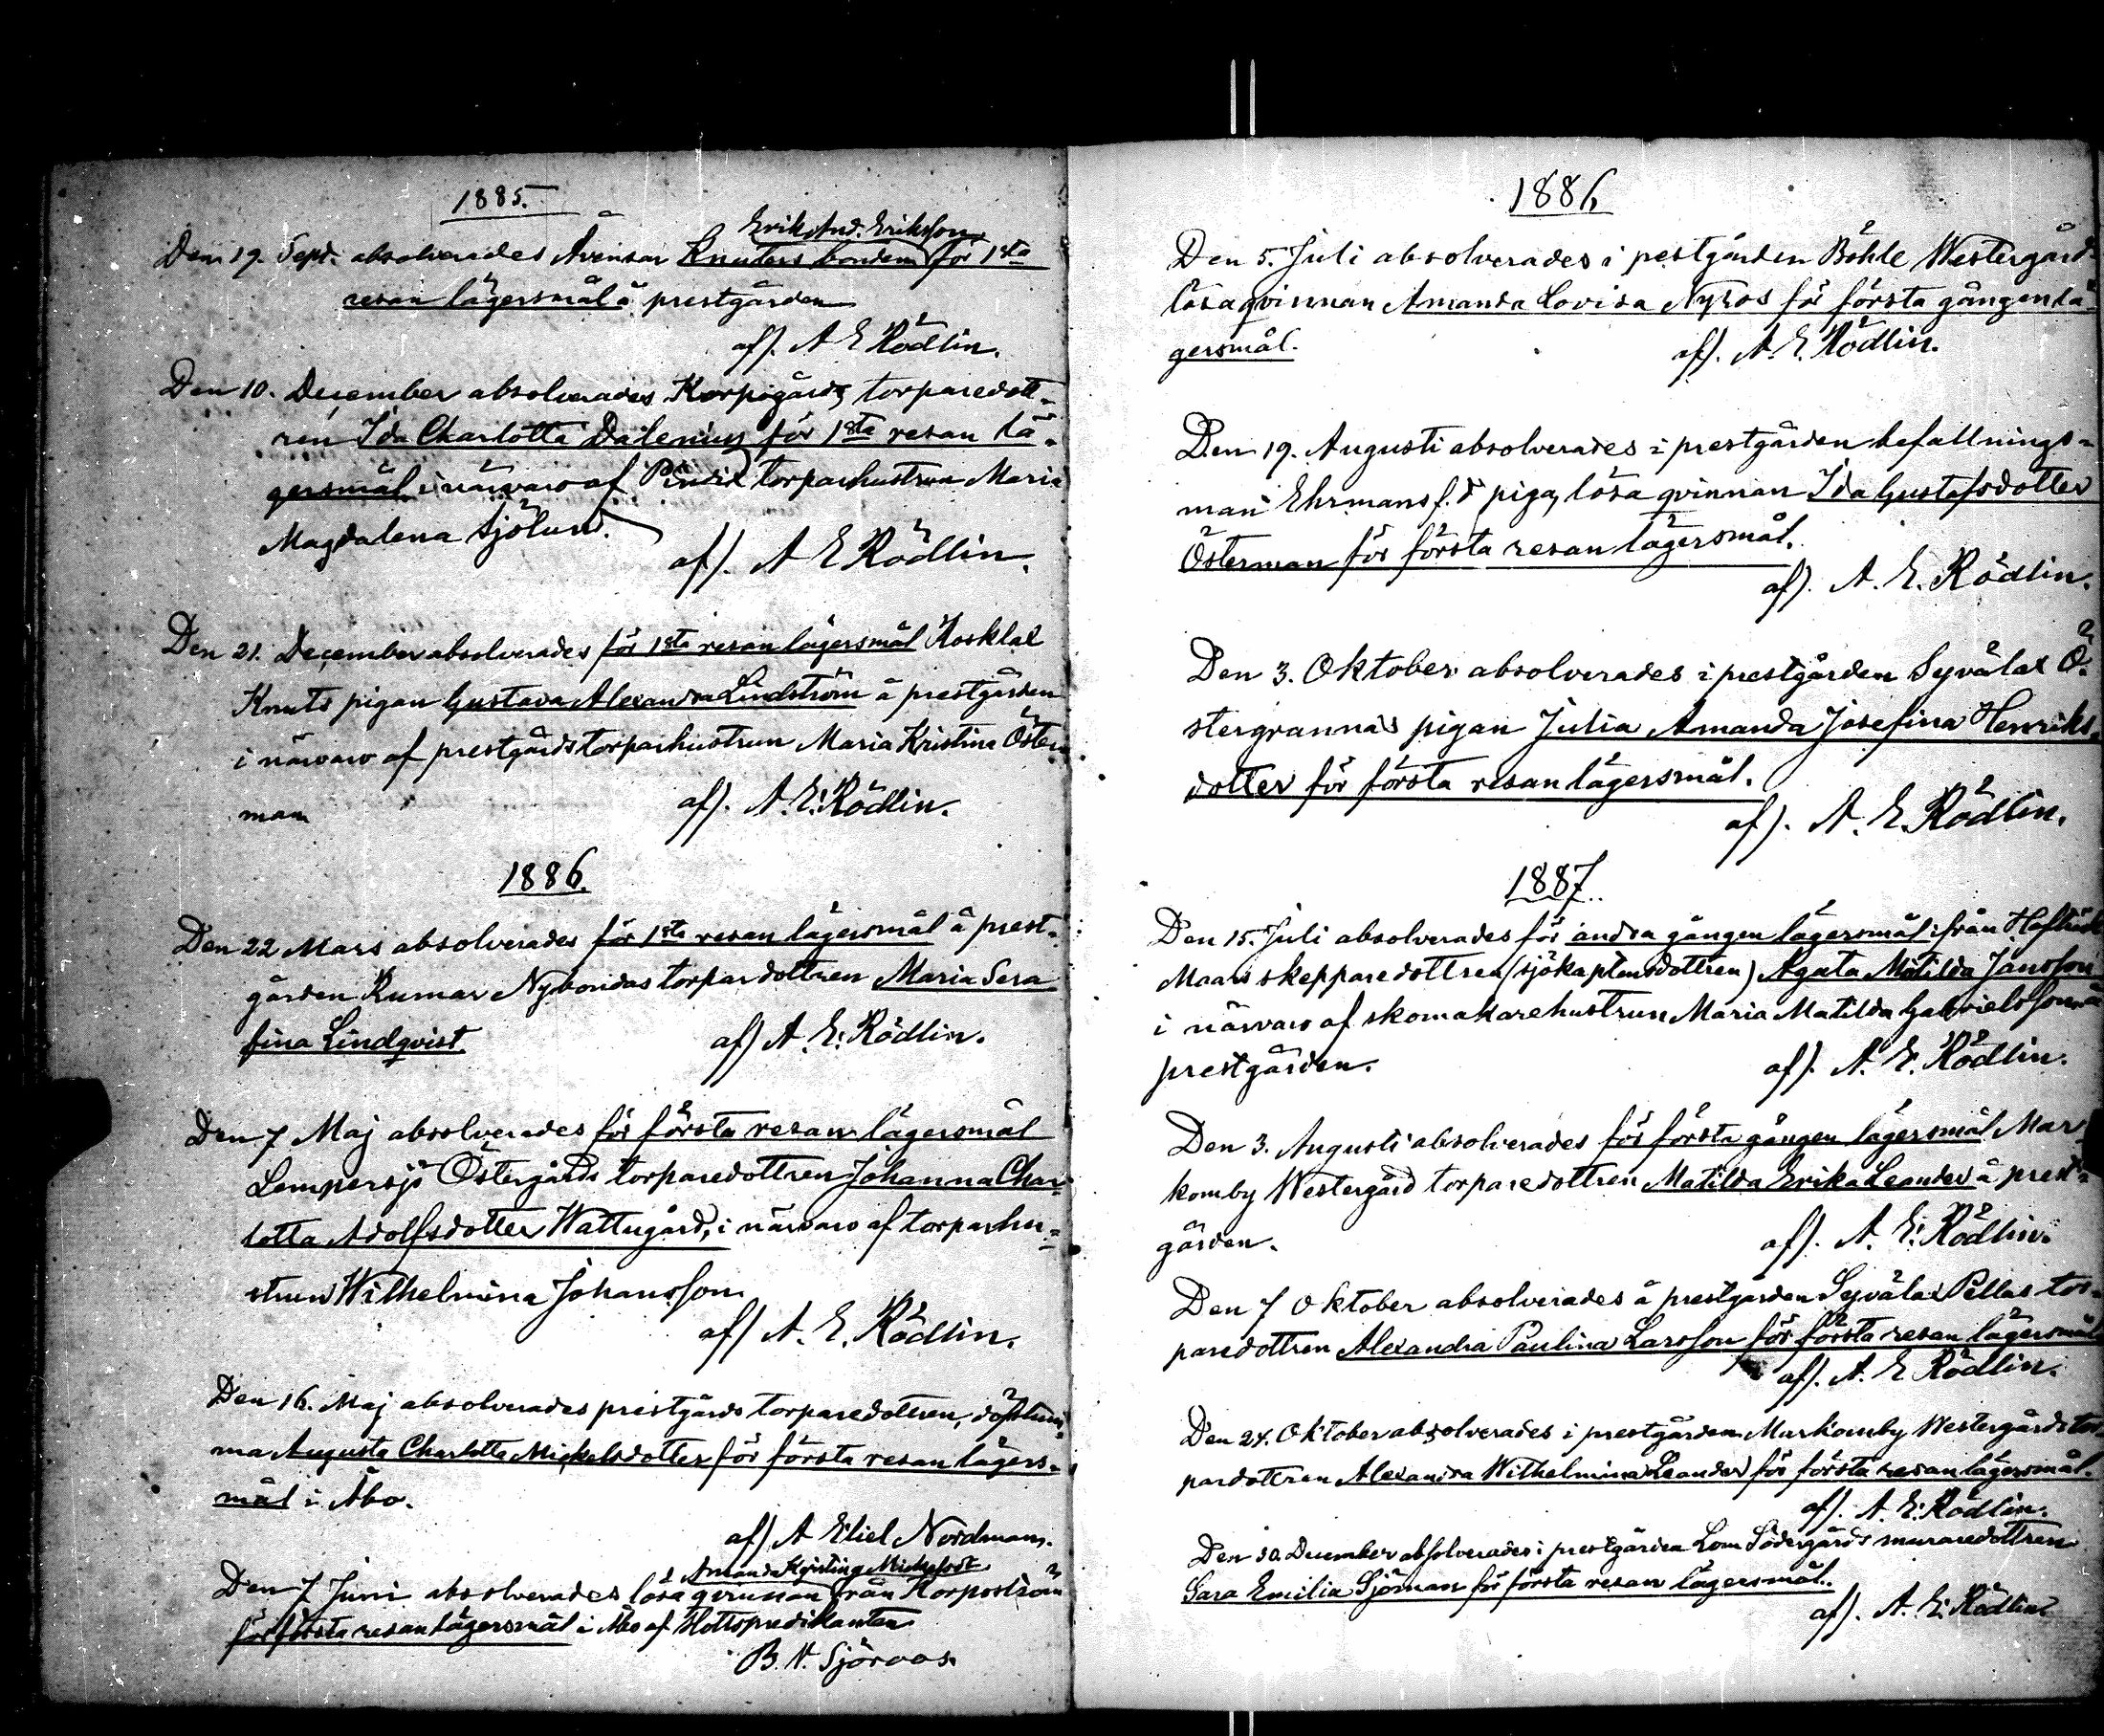 1885.
Erik And. Eriksson
Den 19. Sept. absolverades Avensar Knuters bonden för 1sta
resan lägersmål å prestgården
af). A E Rödlin.
Den 10. December absolverades Korpogårds torparedott-
ren Ida Charlotta Dalenius för 1sta resan lä-
gersmål i närvaro af torparhustrun Maria
Magdalena Sjölund.
af). A E Rödlin.
Den 21. December absolverades för 1sta resan lägersmål Kosklax
Knuts pigan Gustava Alexandra Lindström å prestgården
i närvaro af prestgårdstorparhustrun Maria Kristina Öster-
man
af). A. E. Rödlin.
1886.
Den 22 Mars absolverades för 1sta resan lägersmål å prest-
gården Rumar Nybondas torpardottren Maria Sera
fina Lindqvist.
af) A. E. Rödlin.
Den 7 Maj absolverades för första resan lägersmål
Lempersjö Östergårds torparedottren Johanna Char-
lotta Adolfsdotter Wattugård, i närvaro af torparhu-
strun Wilhelmina Johansson
af) A. E. Rödlin.
Den 16. Maj absolverades prestgårds torparedottren, döfstum-
ma Augusta Charlotta Mickelsdotter för första resan lägers-
mål i Åbo.
af) A Eliel Nordman.
Amanda Kristina Mickelsdt
Den 7 Juni absolverades lösa qvinnan från Korpoström
för första resan lägersmål i Åbo af Hottspredikanten
B. H. Sjöroos.
1886.
Den 5. Juli absolverades i pestgården Böhle Westergård-
lösaqvinnan Amanda Lovisa Nyroos för första gången lä-
gersmål.
af). A. E. Rödlin.
Den 19. Augusti absolverades i prestgården befallnings-
man Ehrmans f.d piga, lösa qvinnan Ida Gustafsdotter
Österman för första resan lägersmål.
af). A. E. Rödlin.
Den 3. Oktober absolverades i prestgården Syvälax Ö-
stergrannas pigan Julia Amanda Josefina Henriks-
dotter för första resan lägersmål.
af). A. E. Rödlin.
1887.
Den 15. Juli absolverades för andra gången lägersmål från
Maars skepparedottren (sjökaptensdottren) Agata Matilda Jansson
i närvaro af skomakarehustrun Maria Matilda Gabrielsson å
prestgården.
af). A. E. Rödlin.
Den 3. Augusti absolverades för första gången lägersmål Mar-
komby Westergård torparedottren Matilda Erika Leander å prest-
gården.
af). A. E. Rödlin.
Den 7 Oktober absolverades å prestgården Syvälax Pellas tor-
paredottren Alexandra Paulina Larsson för första resan lägersmål
af). A. E Rödlin.
Den 24. Oktober absolverades i prestgården Markomby Westergårds tor-
pardottren Alexandra Wilhelmina Leander för första resan lägersmål.
af). A. E. Rödlin.
Den 30. December absolverades i prestgården Lom Södergårds muraredottren
Sara Emilia Sjöman för första resan lägersmål.
af). A. E. Rödlin